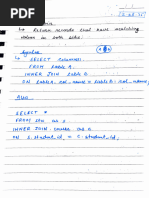 Return records that have matching
values in both sides.
Syntax
SELECT columns
FROM table A
INNER JOIN table B
ON table A. col_name = table B. col_name;
SELECT *
INNER JOIN course as c
ON s.student_id = c.student_id;